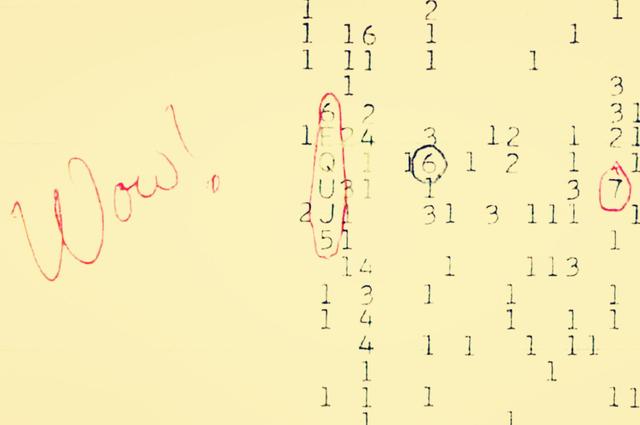 Wow!
1 2 1
1 16 1 1
1 11 1 1
1 3
6 2 31
1 E 24 3 12 1 21
Q 1 16 1 2 1 1 1
U 31 1 3 7
2 J 1 31 3 111 1
5 1 1
14 1 113
1 3 1 1 1
1 4 1 1 1
4 1 1 1 11
1 1
1 1 1 11
1 1